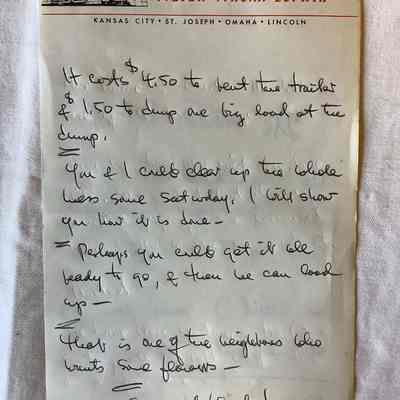 KANSAS CITY • ST. JOSEPH • OMAHA • LINCOLN
It costs $4.50 to rent the trailer
& $1.50 to dump one big load at the
dump.
You & I could clear up the whole
mess some Saturday. I will show
you how it is done—
Perhaps you could get it all
ready to go, & then we can load
up—
That is one of the neighbors who
wants some flowers—